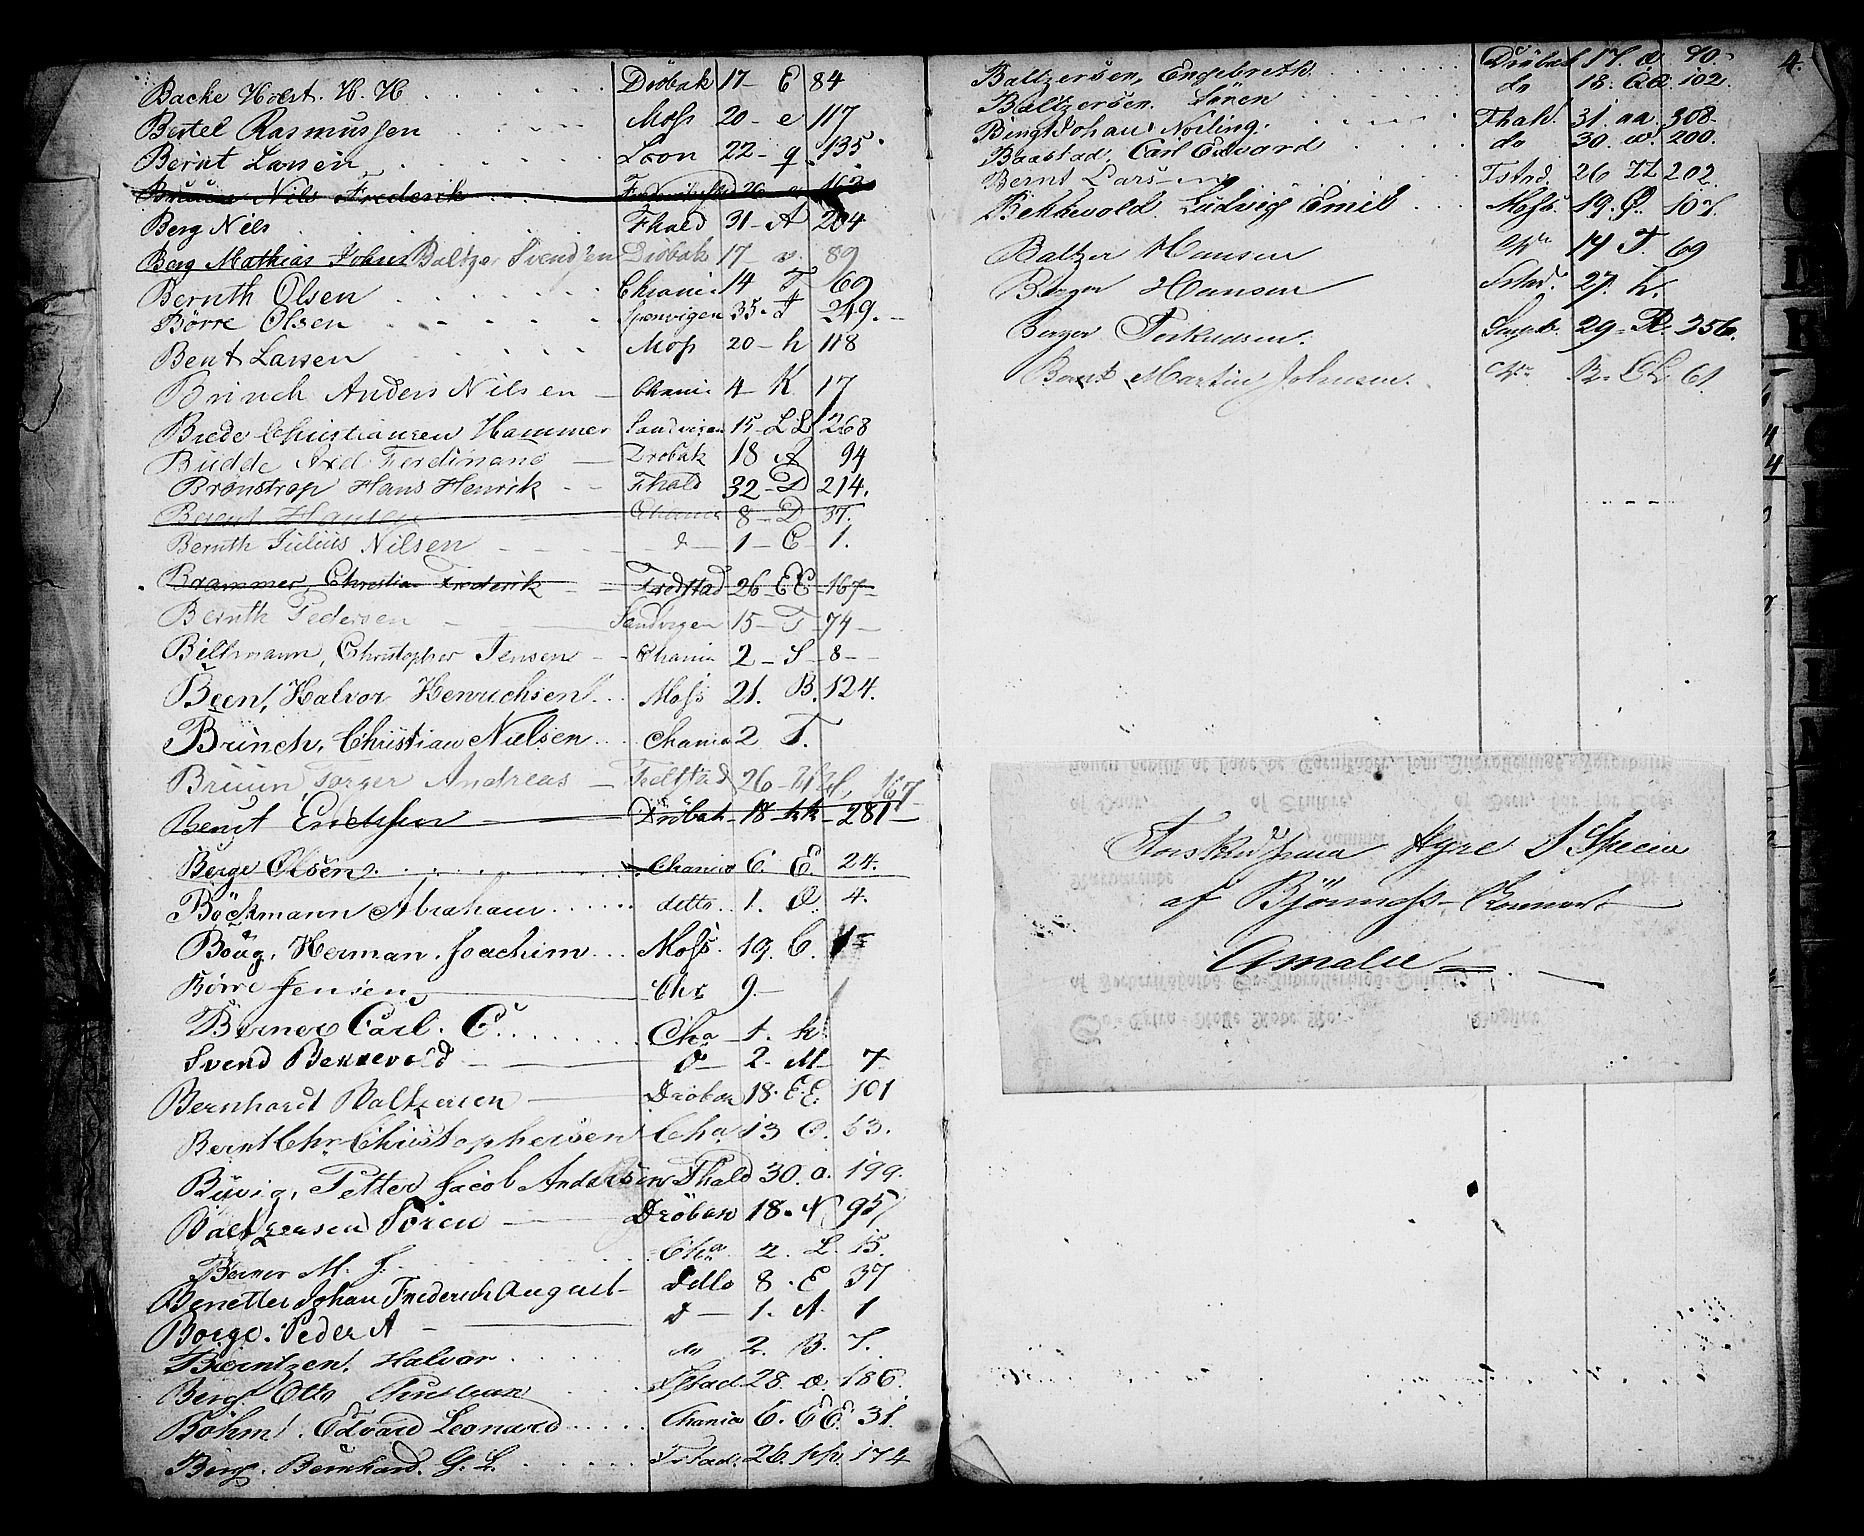 Backe Holst. H. H . . . . . . . Dröbak 17 - E 84
Bertel Rasmussen . . . . Moss 20 - e 117
Bernt Larsen . . . . . . . Loon 22 - q . 135
Bruun Nils Frederik . . . 26
Berg Nils . . . . . . . Fhald 31 - A 204
Berg Mathias Johns Baltzer Svendsen Dröbak 17 - v. 89
Bernth Olsen . . . . . . . Chrania 14 T 69
Börre Olsen . . . . . . Sponvigen 35 - I 249. -
Bent Larsen . . . . . . Moss 20 - h 118
Brinch Anders Nilsen - Chania 4 - K 17
Brede Christiansen Hammer Sandvigen 15 - LL 268
Budde Axel Ferdinand - Dröbak 18 A 94
Brönstrop Hans Henrik - - Fhald 32 - D 214.
Berent Hansen Chania 8 - D 37.
Bernth Julius Nilsen - - - - d - 1 - C - 1.
Brammer, Christian Frederik - - Fredstad 26 - EE - 167 -
Bernth Pedersen - - - Sandvigen 15 - T - 74 -
Biltmann, Christopher Jensen - - Chania 2 - S - 8 -
Been, Halvor Henrichsen . . . Moss 21. B. 124.
Brinch, Christian Nielsen . . . Chania 2 T.
Bruun, Torger Andreas - Fredstad 26 - 167
Bengt Erichsen - Dröbak - 18 - kk - 281 -
Berge Olsen . . . . . . . Chania 6. E. 24.
Böckmann Abraham . . . . . . detto . . 1. O. 4.
Boug, Herman Joachim . . . Moss. 19. C. 1
Börre Jensen Chr 9 -
Berner Carl. C. . . . . . . . Cha 1. k
Svend Bekkevold - - d - 2. M - 7
Bernhardt Baltzersen - Dröbak 18. EE. 101
Bernt Chr. Christophersen Cha 13 O. 63.
Buvig, Petter Jacob Andersen Fhald 30. a. 199.
Baltzersen Sören - Dröbak 18. N 95
Berner M. J. . . . . . . . Cha 2. L. 15.
Benetter Johan Frederich August - Detto 8. E 37
Borge. Peder A - d - 1. A. 1
Berntzen. Halvor . . . . . do 2. B. 7.
Berg. Otto Christian . . . . Fstad 28. a. 186.
Böhm. Edvard Leonard . . . . . . Chania 6. EE. 31.
Berg. Bernhard. G. L. . . . . . . Fstad. 26. pp. 174
4.
Baltzersen, Engebreth . . . . . . Dröbak 17. æ 90.
Baltzersen. Sören . . . . . do 18. 102.
Bengt Johan Norling. . . . . . . Fhald. 31. aa. 308.
Baastad, Carl Edvard . . . . . do 30. 200.
Bernt Larsen . . . . . Fstad. 26 ZZ 202.
Bekkevold. Ludvig Emil . . . Moss. 19. Q. 107.
Baltzer Hansen Chra 14 T. 69
Berger Hansen Fstad. 27. h.
Berger Torkudsen. 29 - R. 256.
Bernt Martin Johnsen. Chra 12. LL 61
Hyre S Specier
af
Amalie